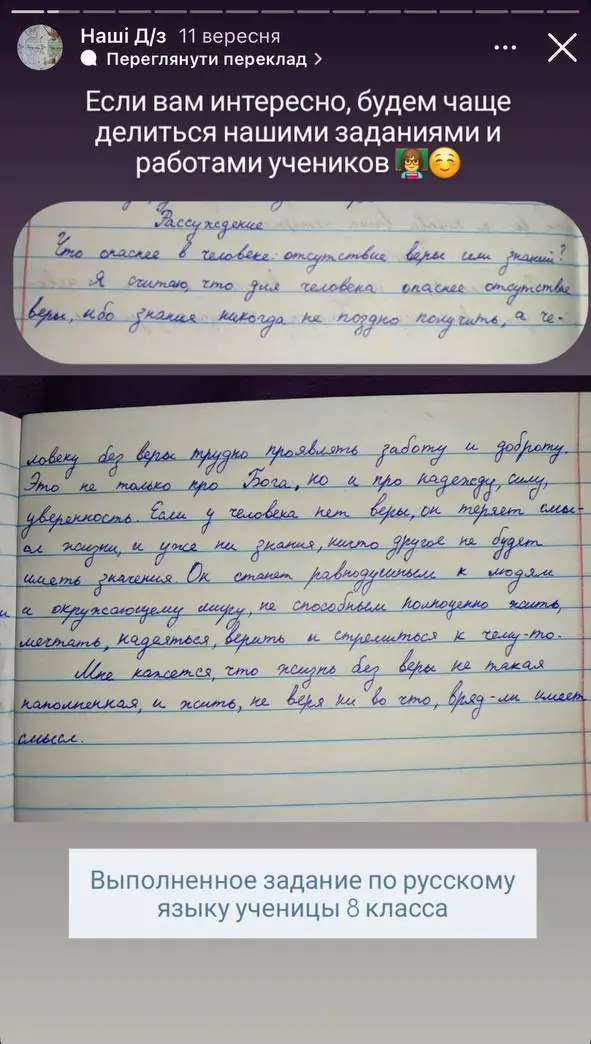 Наші Д/з 11 вересня
Переглянути переклад >
Если вам интересно, будем чаще
делиться нашими заданиями и
работами учеников 👩‍🏫☺️
Рассуждение
Что опаснее в человеке: отсутствие веры или знаний?
Я считаю, что для человека опаснее отсутствие
веры, ибо знания никогда не поздно получить, а че-
ловеку без веры трудно проявлять заботу и доброту.
Это не только про Бога, но и про надежду, силу,
уверенность. Если у человека нет веры, он теряет смы-
сл жизни, и уже ни знания, ничто другое не будет
иметь значения. Он станет равнодушным к людям
и окружающему миру, не способным полноценно жить,
мечтать, надаяться, верить и стремиться к чему-то.
Мне кажется, что жизнь без веры не такая
наполненная, и жить, не веря ни во что, вряд-ли имеет
смысл.
Выполненное задание по русскому
языку ученицы 8 класса